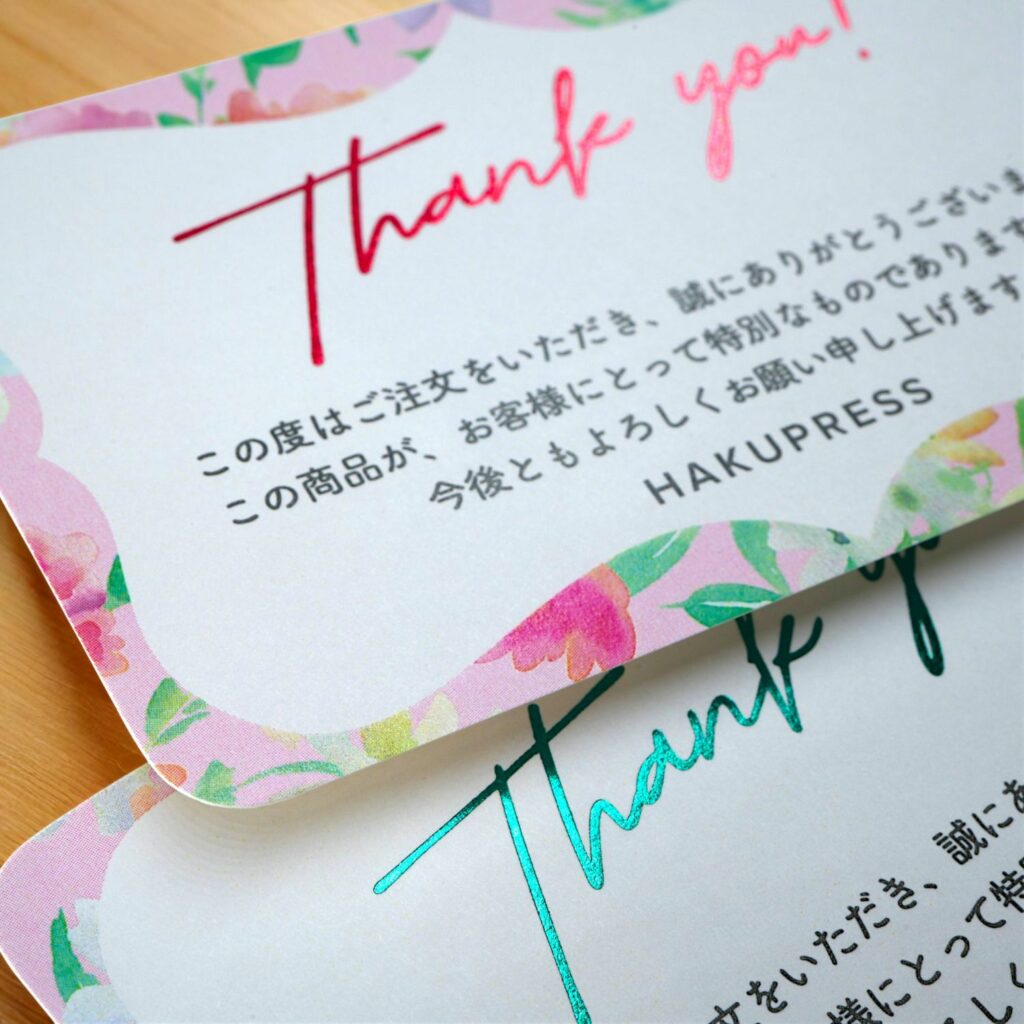 Thank you!
この度はご注文をいただき、誠にありがとうございま
この商品が、お客様にとって特別なものであります
今後ともよろしくお願い申し上げます
HAKUPRESS
Thank y
文をいただき、誠にあ
様にとって特別
しく